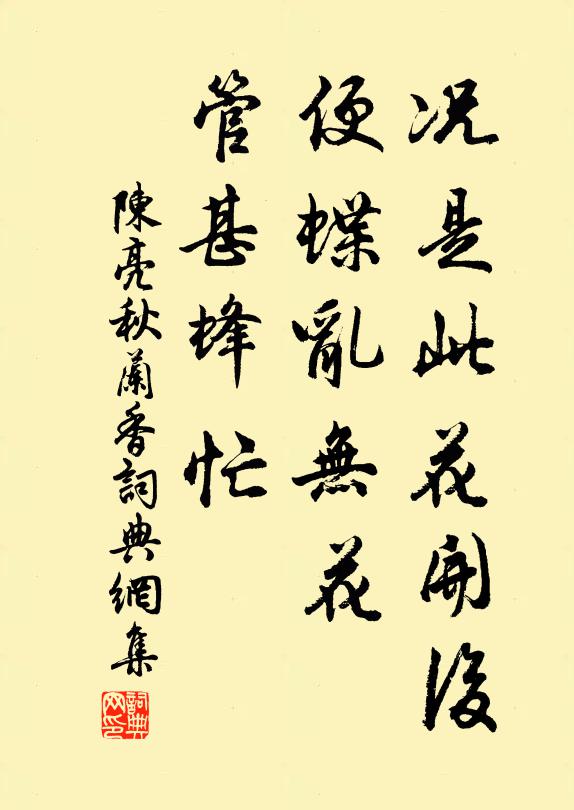 况是此花開後
便蝶亂無花
管甚蜂忙
陳亮秋蘭香詞典網集
詞典网印